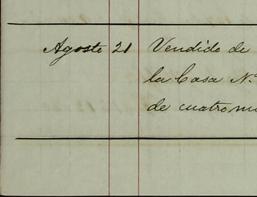 Agosto 21 Vendido de
la Casa Nº
de cuatro mi